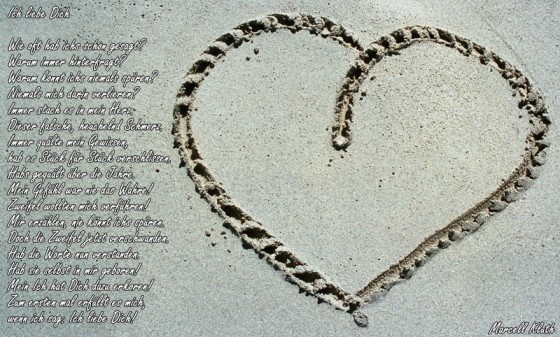 Ich liebe Dich
Wie oft hab ichs schön gesagt?
Warum immer hinterfragt?
Warum könnt ichs niemals spüren?
Niemals mich darin verlieren?
Immer stach es in mein Herz,
Dieser falsche, heuchelnd Schmerz.
Immer quälte mein Gewissen,
hab es Stück für Stück verschlissen.
Habs gequält über die Jahre.
Mein Gefühl war nie das Wahre!
Zweifel wollten mich verführen!
Mir erzählen, nie könnt ichs spüren.
Doch die Zweifel jetzt verschwanden.
Hab die Worte nun verstanden.
Hab sie selbst in mir geboren!
Mein Ich hat Dich dazu erkoren!
Zum ersten mal erfüllt es mich,
wenn ich sag; Ich liebe Dich!
Marcell Kluth